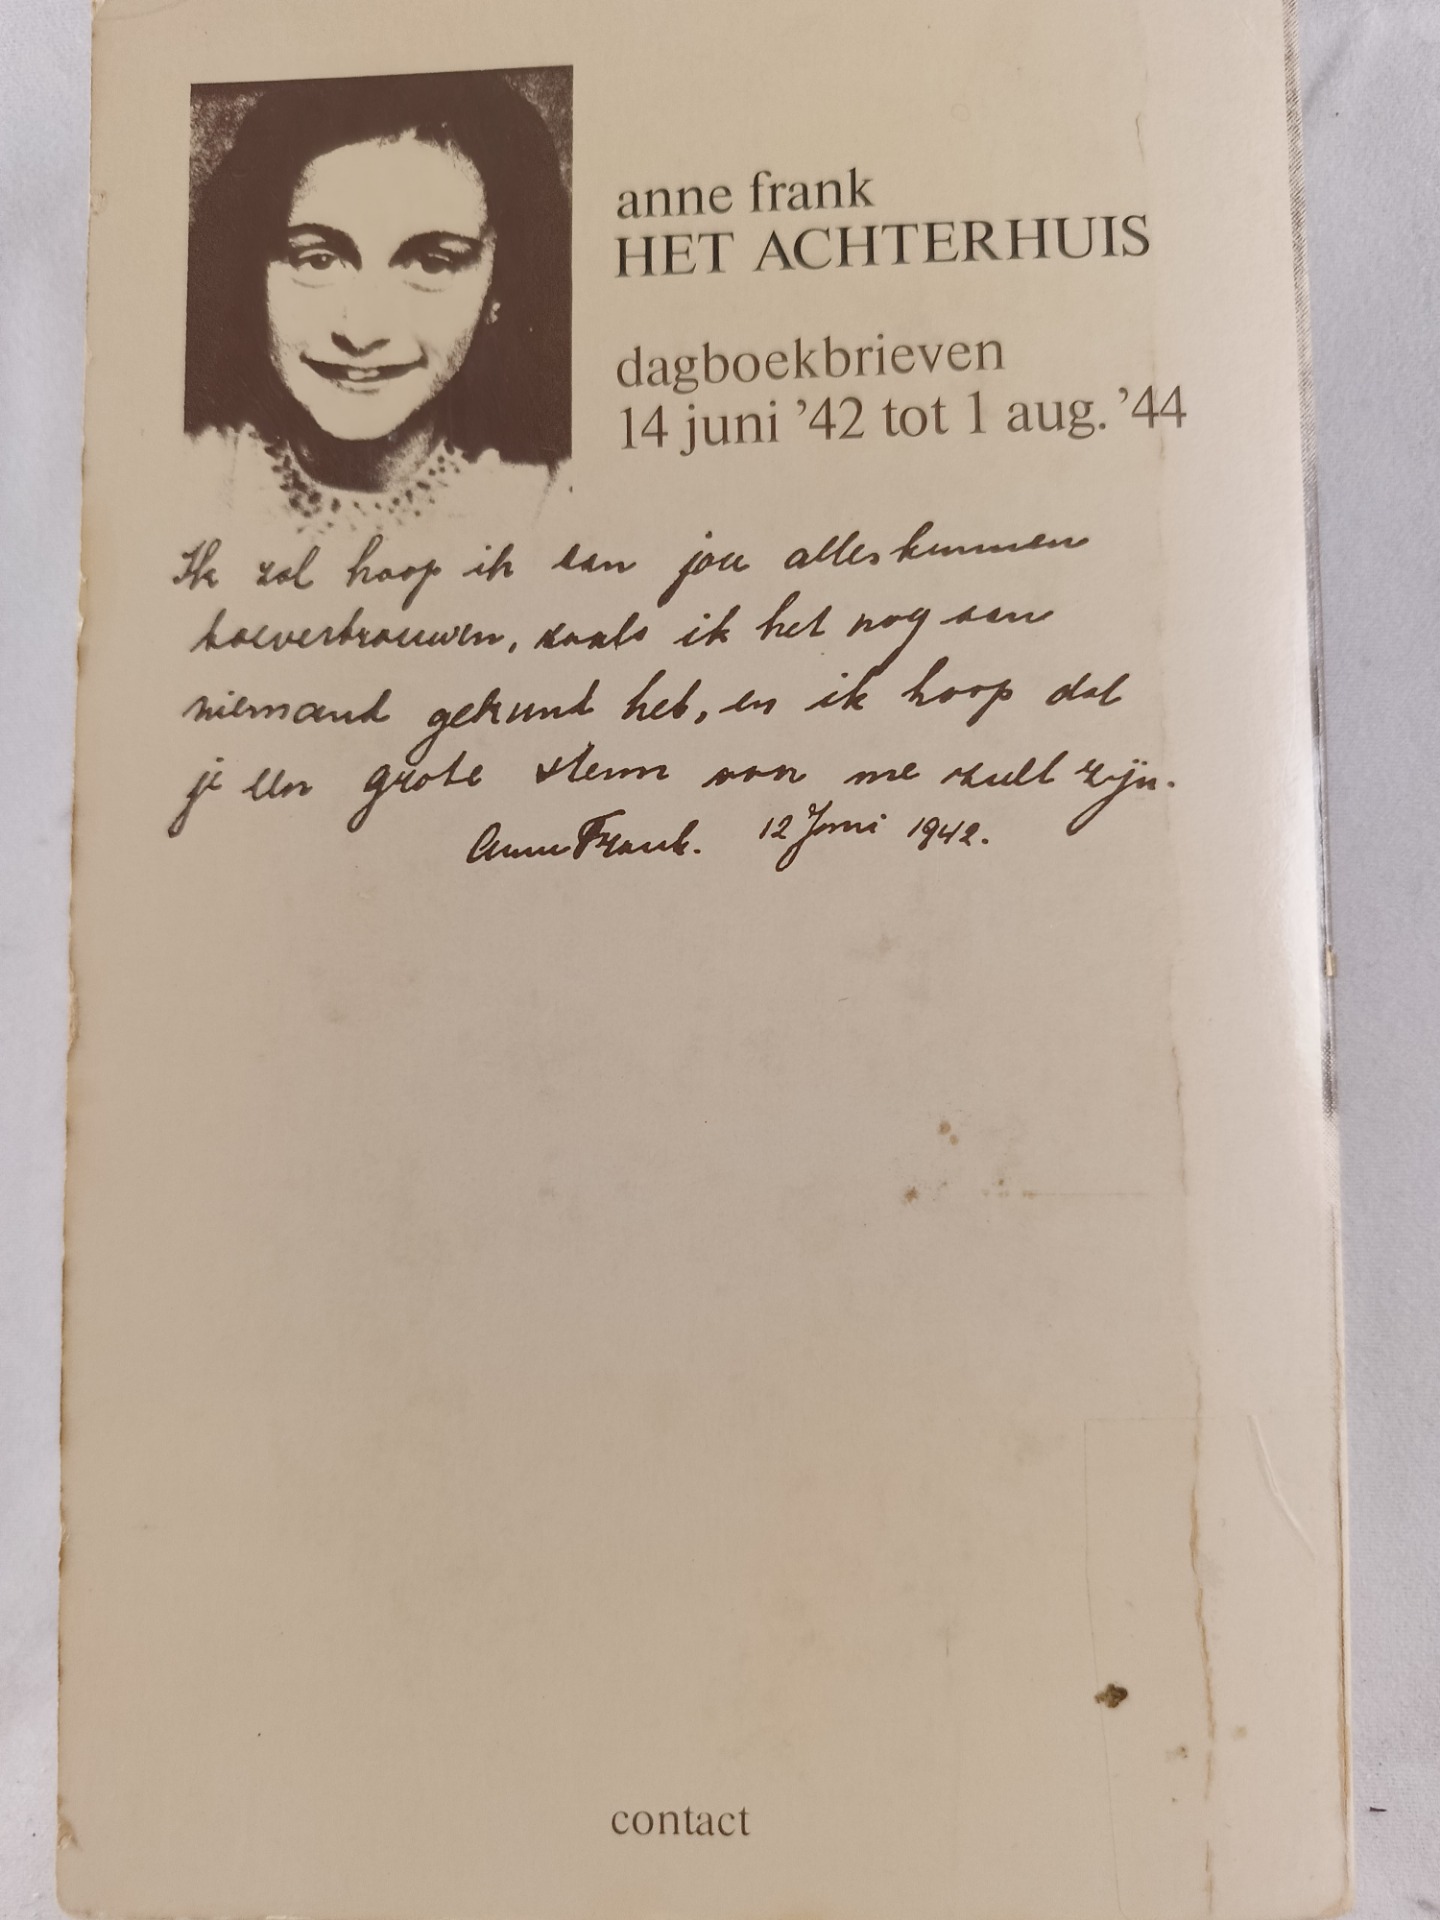 anne frank
HET ACHTERHUIS
dagboekbrieven
14 juni ’42 tot 1 aug. ’44
Ik zal hoop ik aan jou alles kunnen
toevertrouwen, zoals ik het nog aan
niemand gekund heb, en ik hoop dat
je een grote steun van me zult zijn.
Anne Frank. 12 Juni 1942.
contact